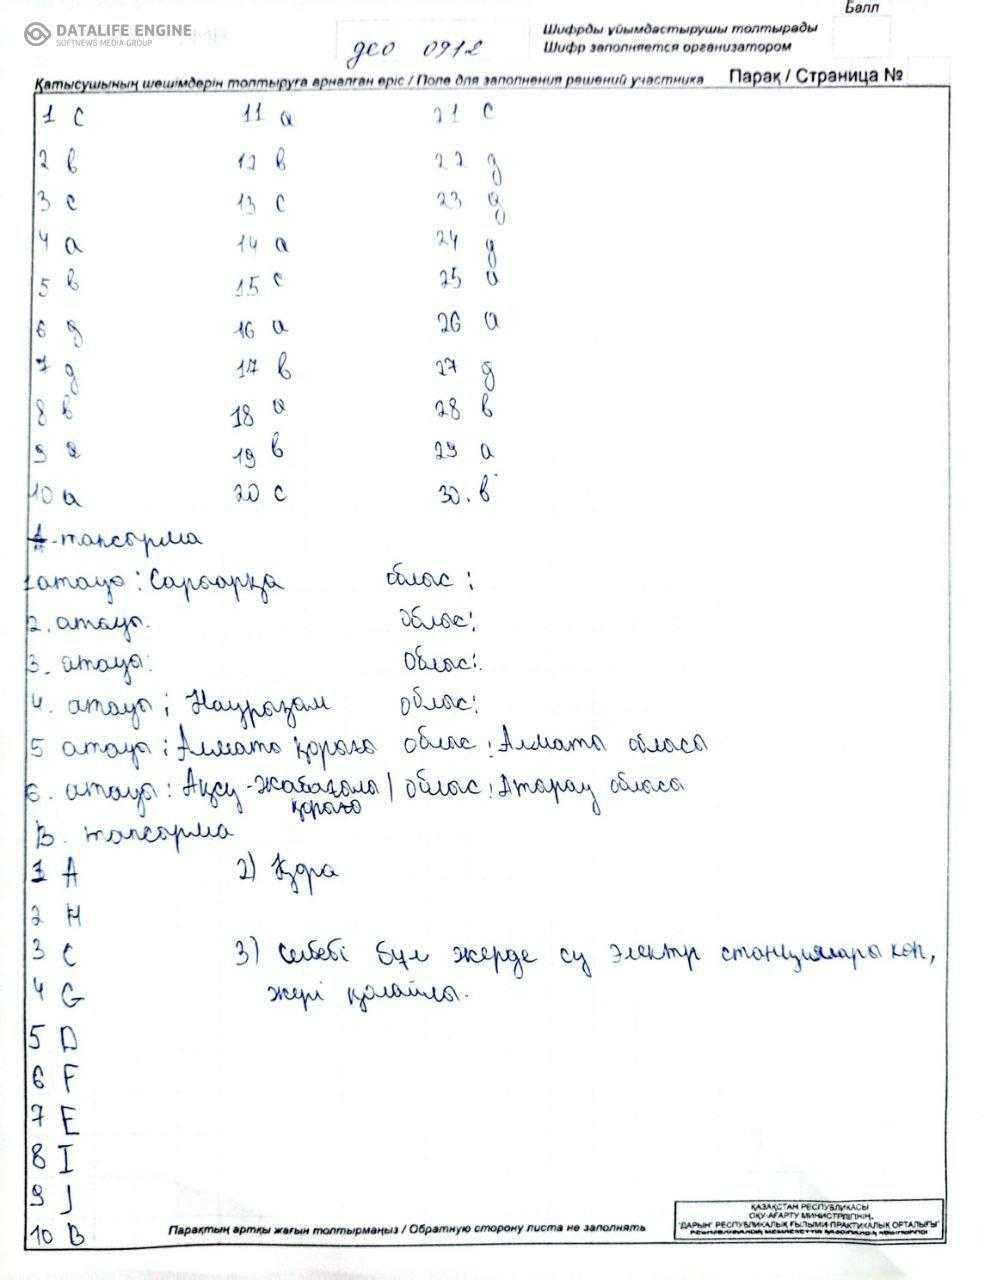 DATALIFE ENGINE
SOFTNEWS MEDIA GROUP
Балл
Шифрды ұйымдастырушы толтырады
гео 0912
Шифр заполняется организатором
Қатысушының шешімдерін толтыруға арналған өріс / Поле для заполнения решений участника Парақ / Страница №
1 с 11 а 21 с
2 в 12 в 22 д
3 с 13 с 23 д
4 а 14 а 24 д
5 в 15 с 25 а
6 д 16 а 26 а
7 д 17 в 27 д
8 в 18 а 28 в
9 19 в 29 а
10 а 20 с 30. в
-тапсырма
1 атауы : Сарыарқа облыс :
2. атауы. облыс:
3. атауы: облыс:
4. атауы : Наурызым облыс:
5 атауы : Алматы қорығы облыс : Алматы облысы
6. атауы : Ақсу-Жабағылы қорығы облыс : Атырау облысы
В. тапсырма
1 A 2) Қдра
2 H
3 C 3) себебі бұл жерде су электр станциялары көп,
4 G жері қолайлы.
5 D
6 F
7 E
8 I
9 J
10 B
Парақтың артқы жағын толтырмаңыз / Обратную сторону листа не заполнять
ҚАЗАҚСТАН РЕСПУБЛИКАСЫ
ОҚУ-АҒАРТУ МИНИСТРЛІГІНІҢ
"ДАРЫН" РЕСПУБЛИКАЛЫҚ ҒЫЛЫМИ-ПРАКТИКАЛЫҚ ОРТАЛЫҒЫ